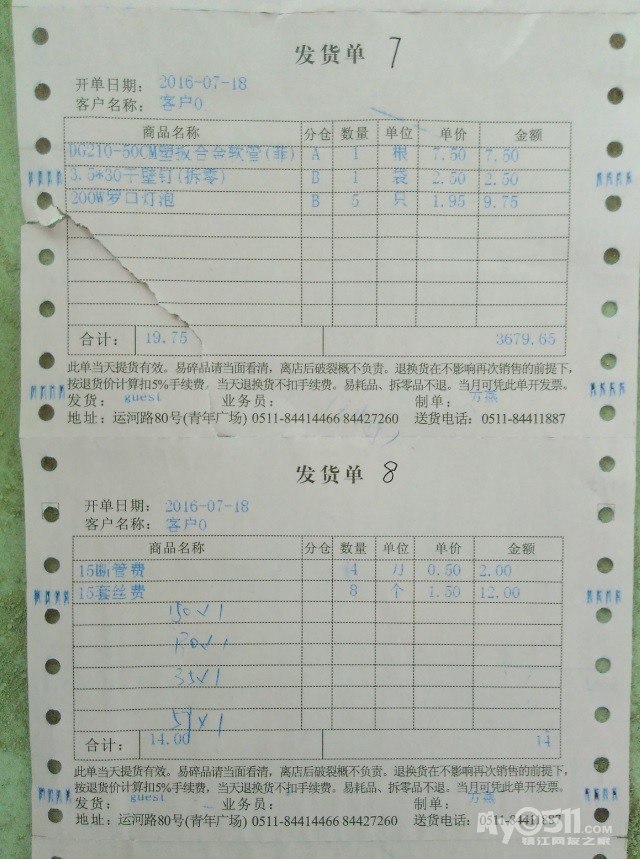 发货单 7
开单日期: 2016-07-18
客户名称: 客户0
商品名称 分仓 数量 单位 单价 金额
DG210-50CM塑扳合金软管(菲) A 1 根 7.50 7.50
3.5*30干壁钉(拆零) B 1 袋 2.50 2.50
200W罗口灯泡 B 5 只 1.95 9.75
合计: 19.75 3679.65
此单当天提货有效。易碎品请当面看清，离店后破裂概不负责。退换货在不影响再次销售的前提下，
按退货价计算扣5%手续费。当天退换货不扣手续费。易耗品、拆零品不退。当月可凭此单开发票。
发货: guest 业务员: 制单: 万燕
地址: 运河路80号(青年广场) 0511-84414466 84427260 送货电话: 0511-84411887
发货单 8
开单日期: 2016-07-18
客户名称: 客户0
商品名称 分仓 数量 单位 单价 金额
15断管费 4 刀 0.50 2.00
15套丝费 8 个 1.50 12.00
150×1
170×1
35×1
57×1
合计: 14.00 14
此单当天提货有效。易碎品请当面看清，离店后破裂概不负责。退换货在不影响再次销售的前提下，
按退货价计算扣5%手续费。当天退换货不扣手续费。易耗品、拆零品不退。当月可凭此单开发票。
发货: guest 业务员: 制单: 万燕
地址: 运河路80号(青年广场) 0511-84414466 84427260 送货电话: 0511-84411887
My0511.com
镇江网友之家